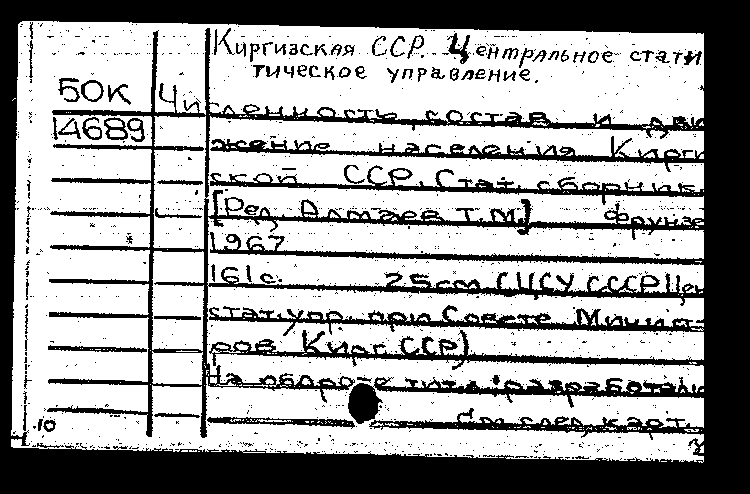 Киргизская ССР. Центральное стати
тическое управление.
50К Численность, состав и дви
14689
жение населения Кирги
ской ССР. Стат. сборник.
[Ред. Алтаев Т.М.] Фрунзе
1967
161с. 25см (ЦСУ СССР Цен
стат. упр. при Совете Минист-
ров Кирг. ССР)
На обороте тит. л.: разработали
См. след. карт.
10